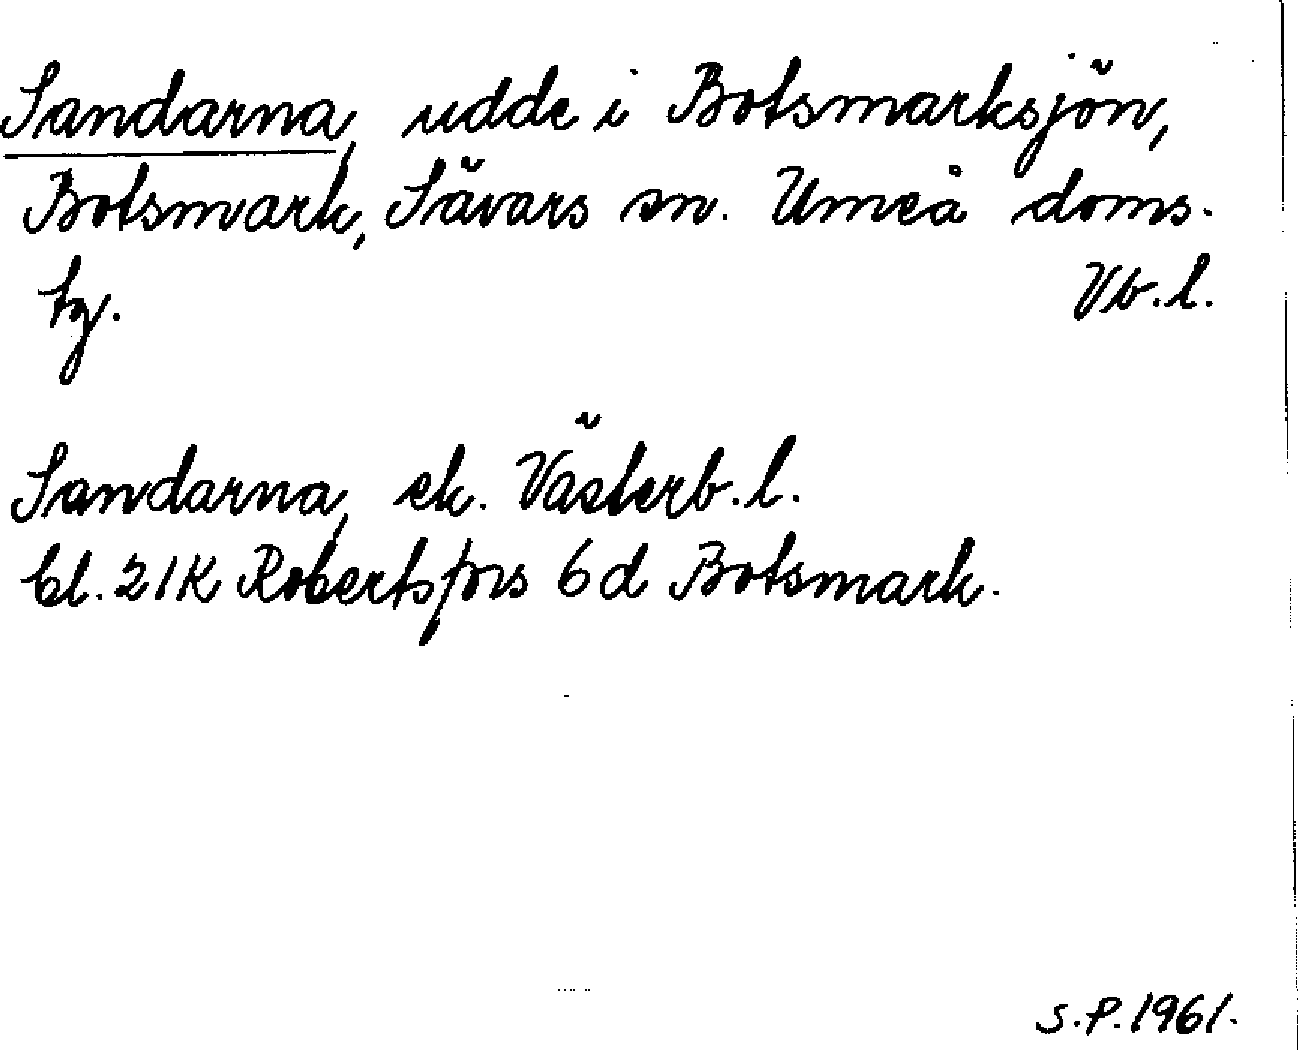 Sandarna, udde i Botsmarksjön,
Botsmark, Sävars sn. Umeå doms.
tg. Vb.l.
Sandarna, ek. Västerb.l.
bl. 21K Robertsfors 6d Botsmark.
S.P. 1961.